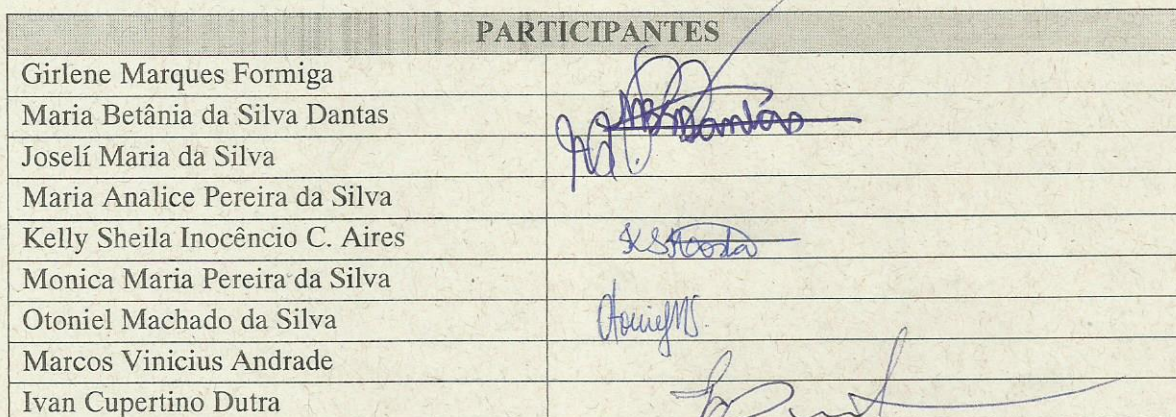 PARTICIPANTES
Girlene Marques Formiga
Maria Betânia da Silva Dantas
Joselí Maria da Silva
Maria Analice Pereira da Silva
Kelly Sheila Inocêncio C. Aires
Monica Maria Pereira da Silva
Otoniel Machado da Silva
Marcos Vinicius Andrade
Ivan Cupertino Dutra